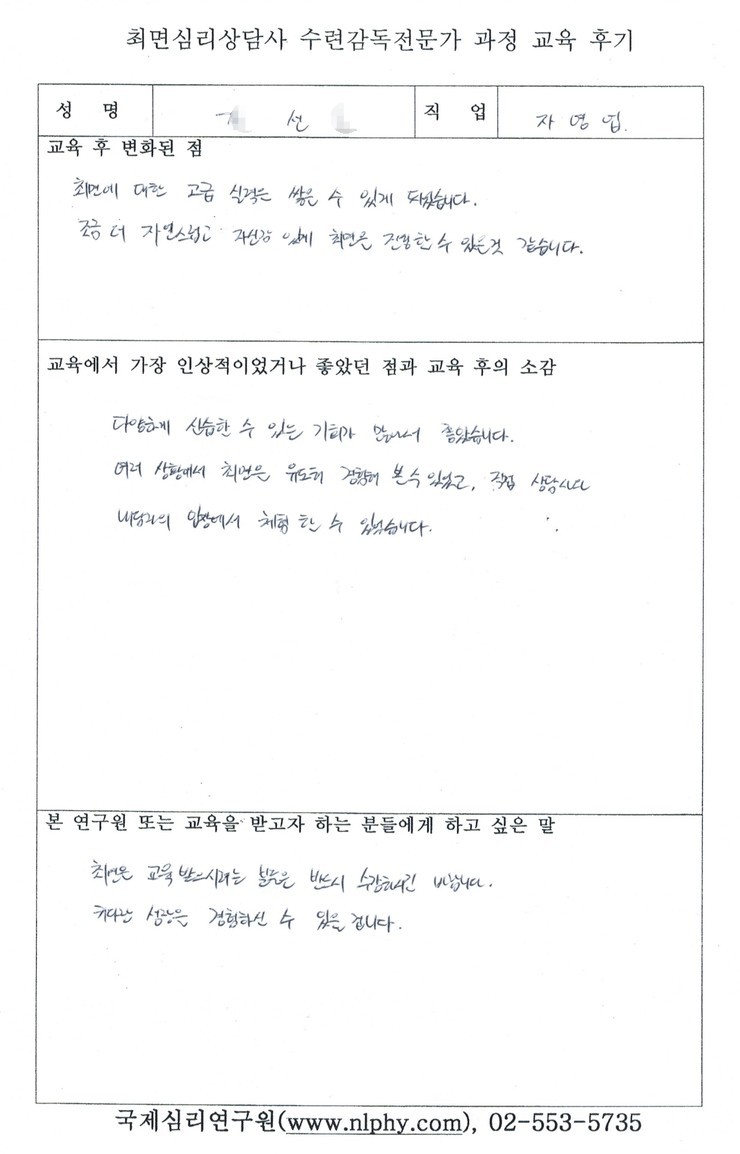 최면심리상담사 수련감독전문가 과정 교육 후기
성 명 선 직 업 자영업.
교육 후 변화된 점
최면에 대한 고급 실력을 쌓을 수 있게 되었습니다.
조금 더 자연스럽고 자신감 있게 최면을 진행할 수 있을것 같습니다.
교육에서 가장 인상적이었거나 좋았던 점과 교육 후의 소감
다양하게 실습할 수 있는 기회가 많아서 좋았습니다.
여러 상황에서 최면을 유도해 경험해 볼 수 있었고, 직접 상담사나
내담자의 입장에서 체험 할 수 있었습니다.
본 연구원 또는 교육을 받고자 하는 분들에게 하고 싶은 말
최면을 교육 받으시려는 분들은 반드시 수강하시길 바랍니다.
커다란 성장을 경험하실 수 있을 겁니다.
국제심리연구원(www.nlphy.com), 02-553-5735